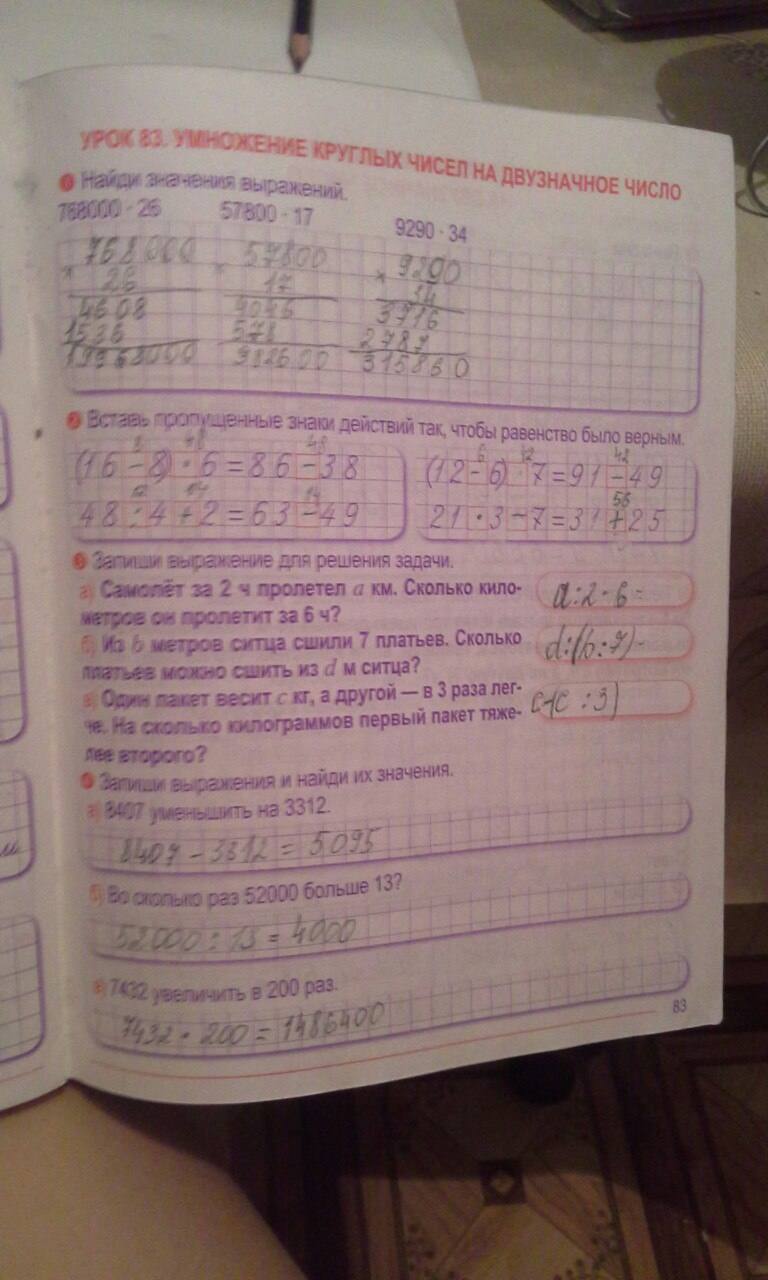 УРОК 83. УМНОЖЕНИЕ КРУГЛЫХ ЧИСЕЛ НА ДВУЗНАЧНОЕ ЧИСЛО
1 Найди значения выражений.
768000 · 26 57800 · 17 9290 · 34
768000 57800 9290
× 26 × 17 × 34
4608 4046 3716
1536 578 2787
19968000 982600 315860
2 Вставь пропущенные знаки действий так, чтобы равенство было верным.
8 48 48 6 42 42
(16 - 8) · 6 = 86 - 38 (12 - 6) · 7 = 91 - 49
12 14 14 56
48 : 4 + 2 = 63 - 49 21 · 3 - 7 = 31 + 25
3 Запиши выражение для решения задачи.
а) Самолёт за 2 ч пролетел a км. Сколько кило-
метров он пролетит за 6 ч? a : 2 · 6 =
б) Из b метров ситца сшили 7 платьев. Сколько
платьев можно сшить из d м ситца? d : (b : 7) -
в) Один пакет весит c кг, а другой — в 3 раза лег-
че. На сколько килограммов первый пакет тяже- c-(c : 3)
лее второго?
4 Запиши выражения и найди их значения.
а) 8407 уменьшить на 3312.
8407 - 3312 = 5095
б) Во сколько раз 52000 больше 13?
52000 : 13 = 4000
в) 7432 увеличить в 200 раз.
7432 · 200 = 1486400
83